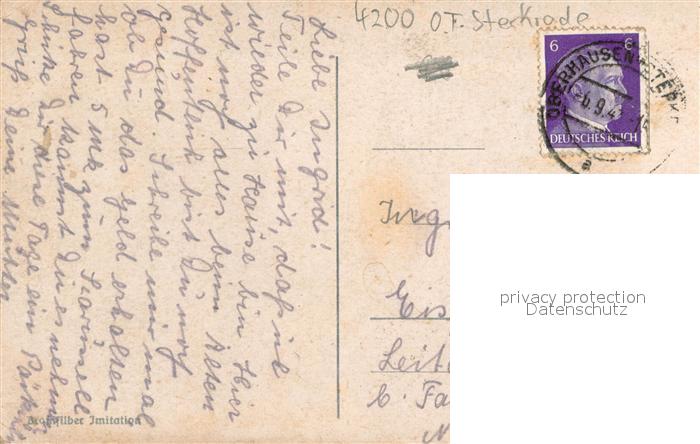 4200 O.T. Sterkrade
6 6
DEUTSCHES REICH
OBERHAUSEN-STERK
6.9.4
a
Liebe Ingrid!
Teile Dir mit, daß ich
wieder zu Hause bin Hier
ist noch alles beim Alten
Hoffentlich bist Du noch
gesund. Schreibe mir mal
ob Du das Geld erhalten
hast 5 mk zum
fahren kannst Du es nehmen
schicke Dir diese Tage ein
Gruß Deine Mutter
Ing
Eis
Leit
b. Fa
N
privacy protection
Datenschutz
Bromsilber Imitation